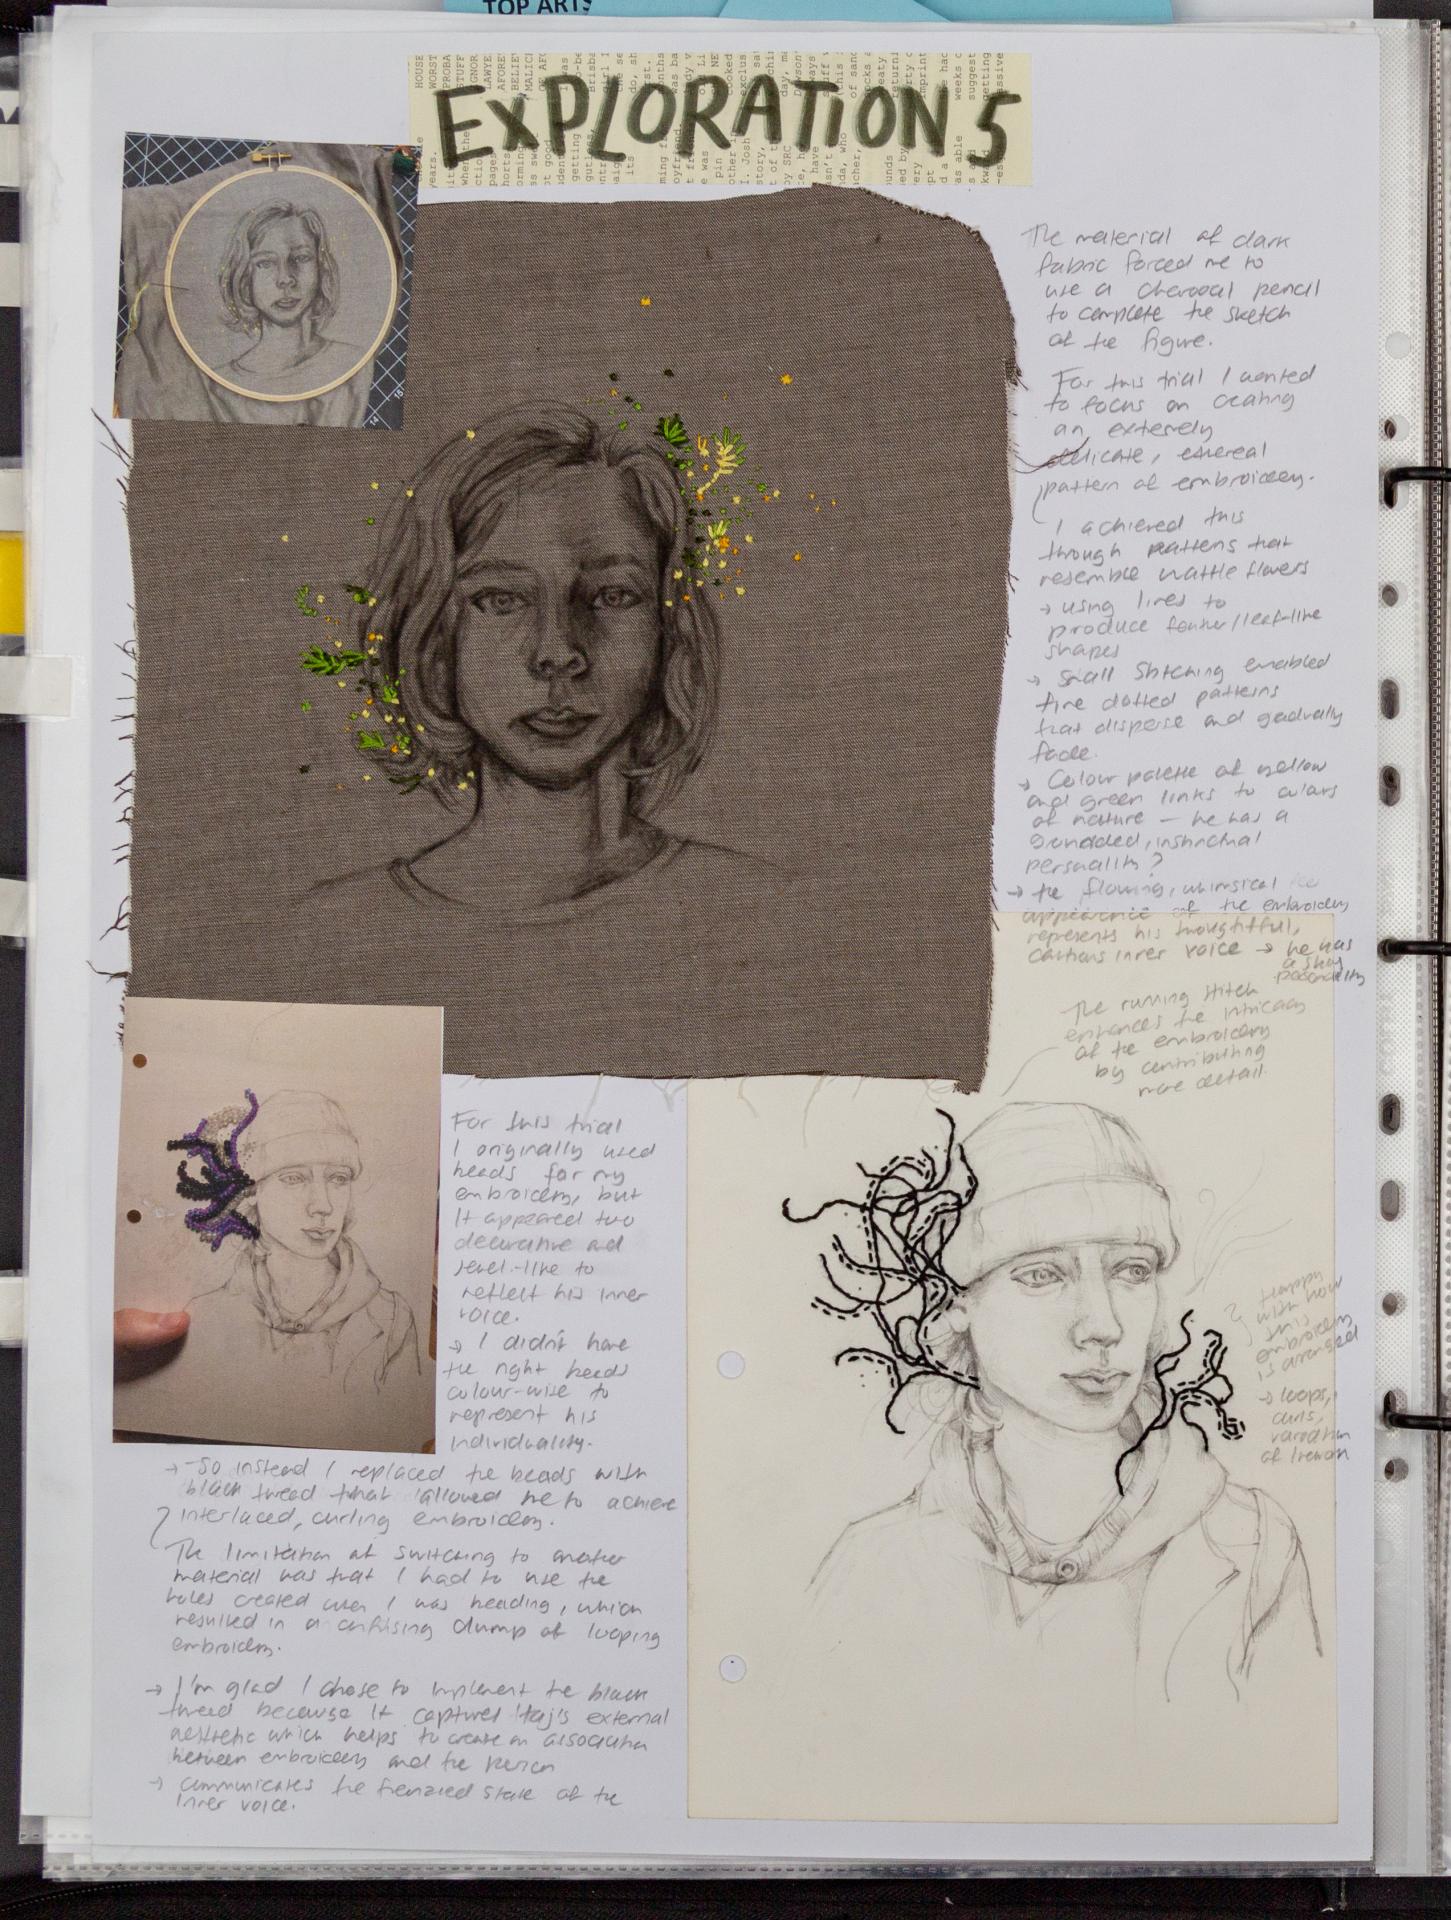 TOP ARTS
EXPLORATION 5
The material of dark
fabric forced me to
use a charcoal pencil
to complete the sketch
of the figure.
For this trial I wanted
to focus on creating
an extemely
delicate, ethereal
pattern of embroidery.
I achieved this
through patterns that
resemble wattle flowers
→ using lines to
produce feather/leaf-like
shapes
→ Small stitching enabled
fine dotted patterns
that disperse and gradually
fade.
→ Colour palette of yellow
and green links to colours
of nature — he has a
grounded, instinctual
personality?
→ the flowing, whimsical
appearance of the embroidery
represents his thoughtful,
cautious inner voice → he has
a shy
personality
The running stitch
enhances the intricacy
of the embroidery
by contributing
more detail.
For this trial
I originally used
beads for my
embroidery, but
it appeared too
decorative and
jewel-like to
reflect his inner
voice.
→ I didn't have
the right beads
colour-wise to
represent his
individuality.
→ So instead I replaced the beads with
black thread that allowed me to achieve
interlaced, curling embroidery.
The limitation of switching to another
material was that I had to use the
holes created when I was beading, which
resulted in a confusing clump of looping
embroidery.
→ I'm glad I chose to implement the black
thread because it captures Taj's external
aesthetic which helps to create an association
between embroidery and the person
→ communicates the frenzied state of the
inner voice.
Happy
with how
this
embroidery
is arranged
→ loops,
curls,
variation
of